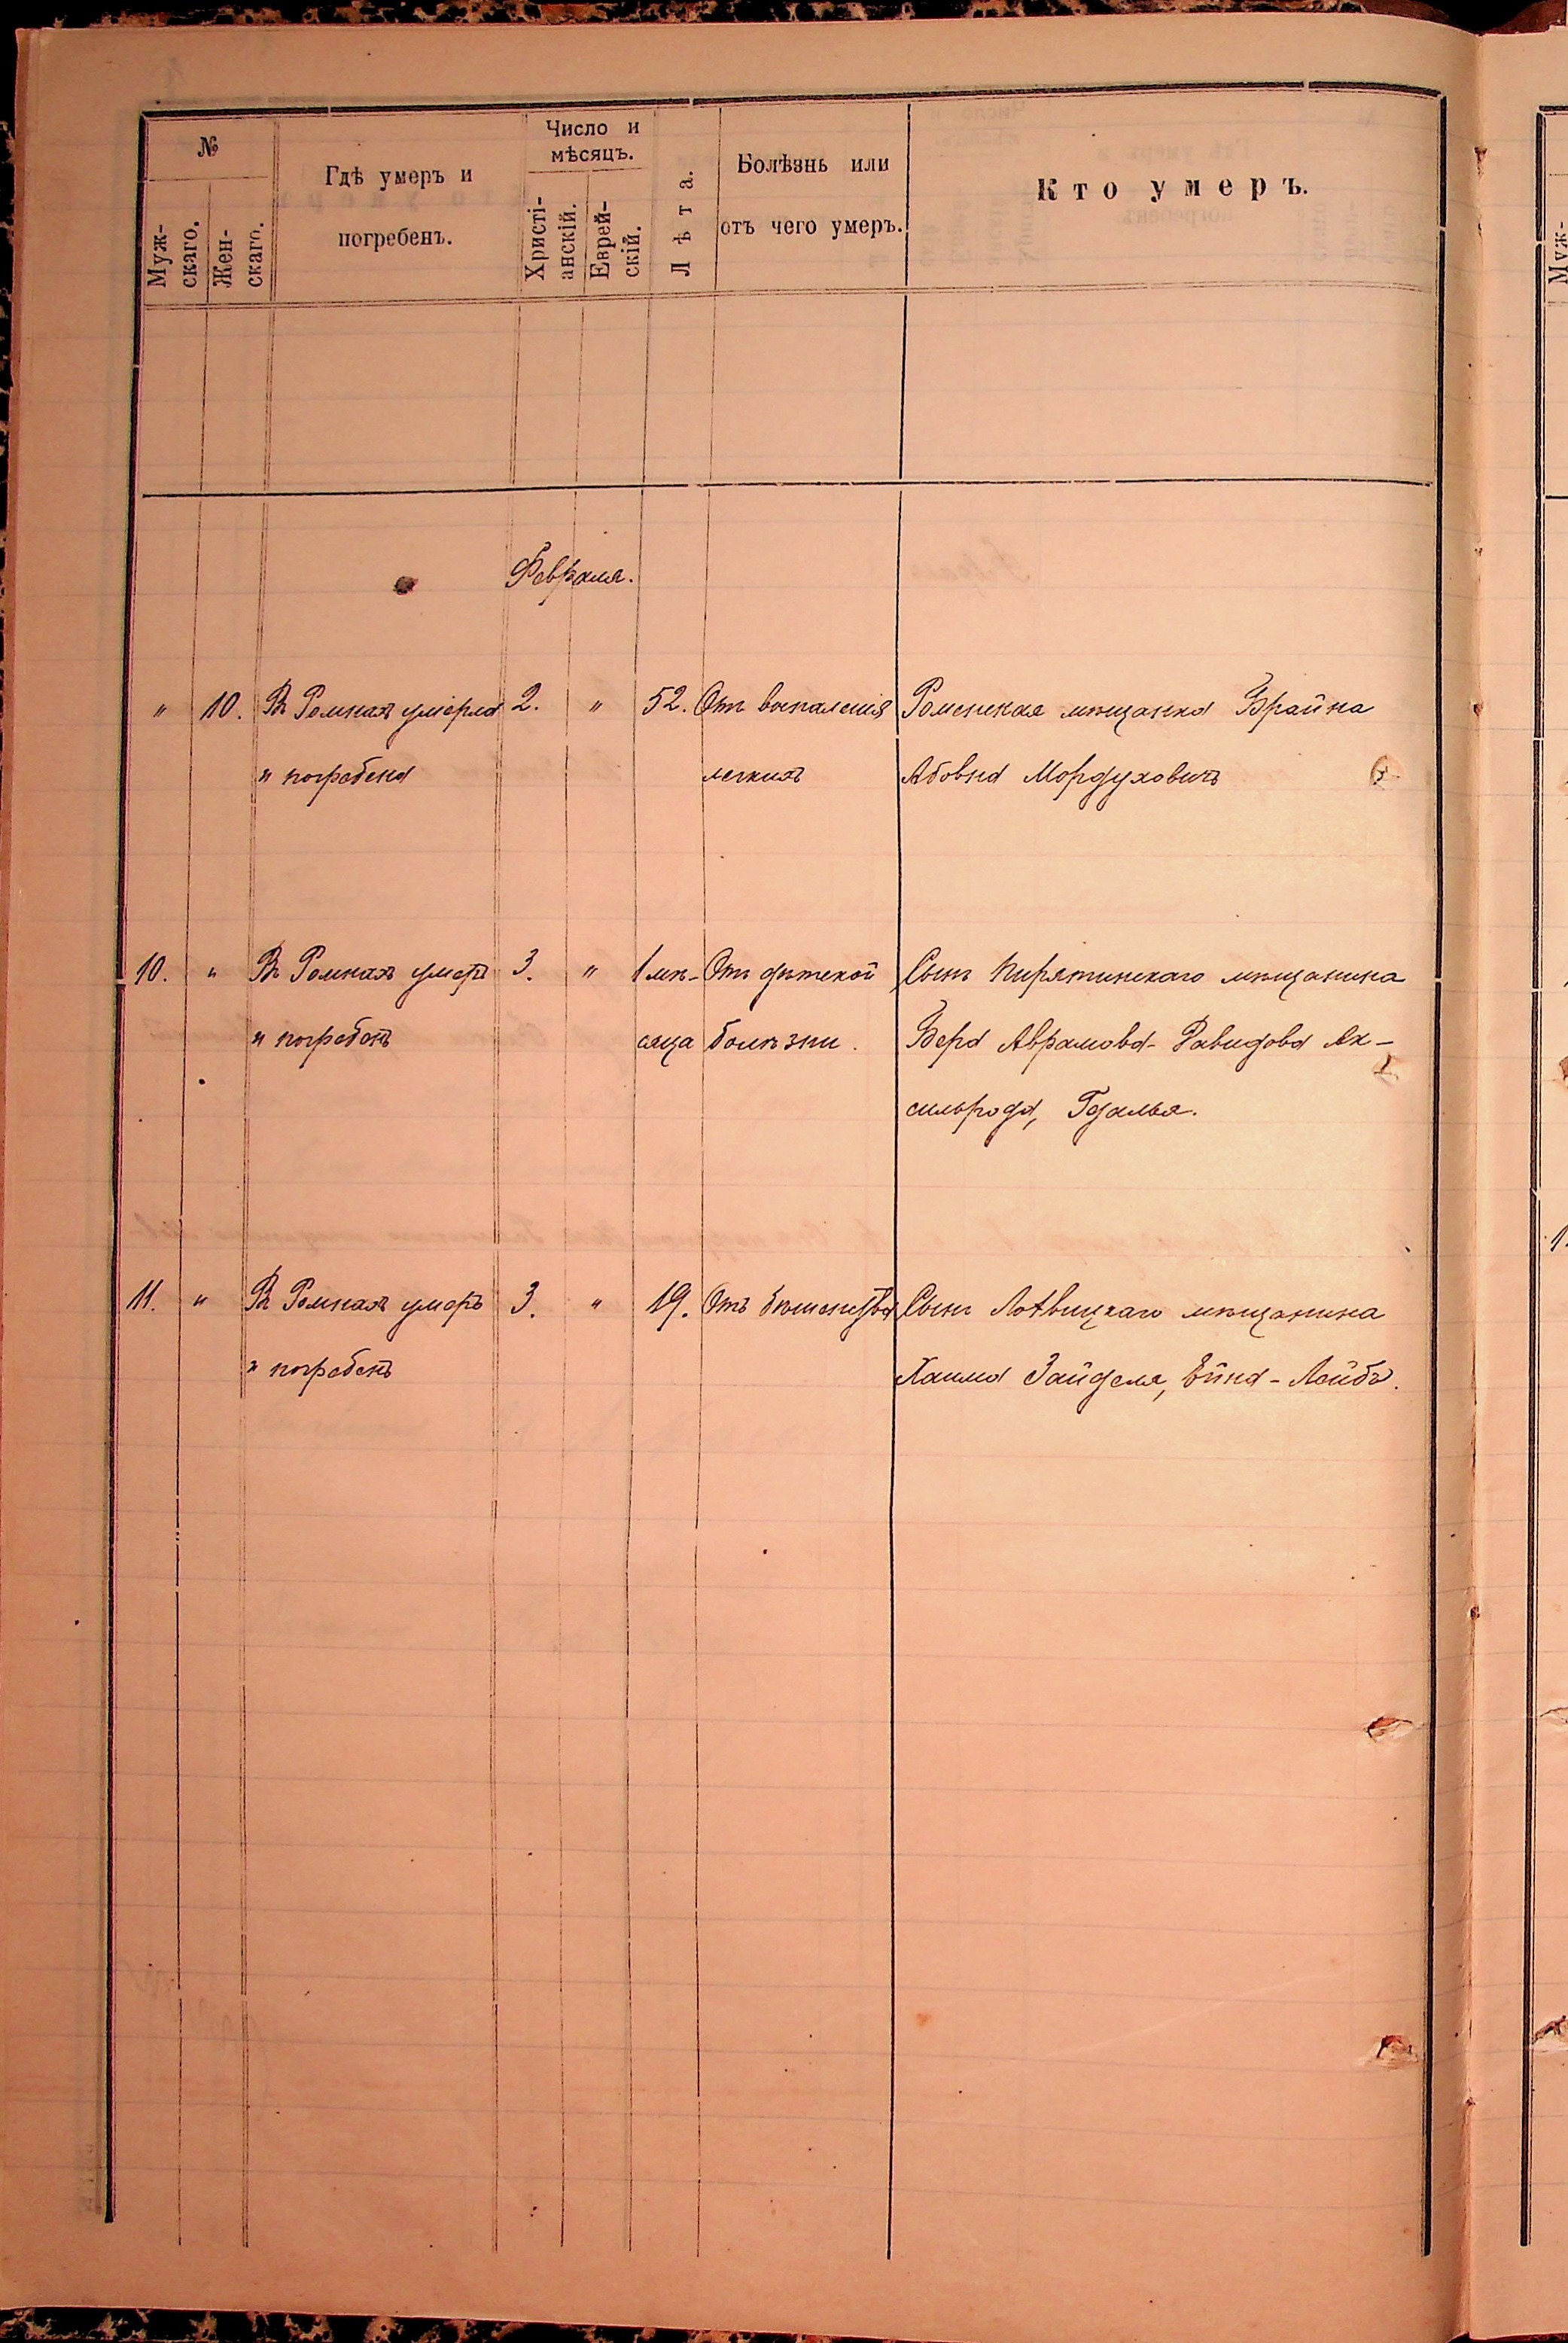 №
Муж-
скаго.
Жен-
скаго.
Гдѣ умеръ и
погребенъ.
Число и
мѣсяцъ.
Христі-
анскій.
Еврей-
скій.
Лѣта.
Болѣзнь или
отъ чего умеръ.
Кто умеръ.
Февраля.
" 10. Въ Ромнахъ умерла 2. " 52. Отъ воспаленія Роменская мѣщанка Брайна
и погребена легкихъ Абовна Мордуховичъ
10. " Въ Ромнахъ умеръ 3. " 1 мѣ- Отъ дѣтской Сынъ Пирятинскаго мѣщанина
и погребенъ сяца болѣзни. Бера Аврамова-Давидова Ак-
сильрода, Гдалья.
11. " Въ Ромнахъ умеръ 3. " 19. Отъ бѣшенства Сынъ Лохвицкаго мѣщанина
и погребенъ Хаима Зайделя, -Лейбъ.
Муж-